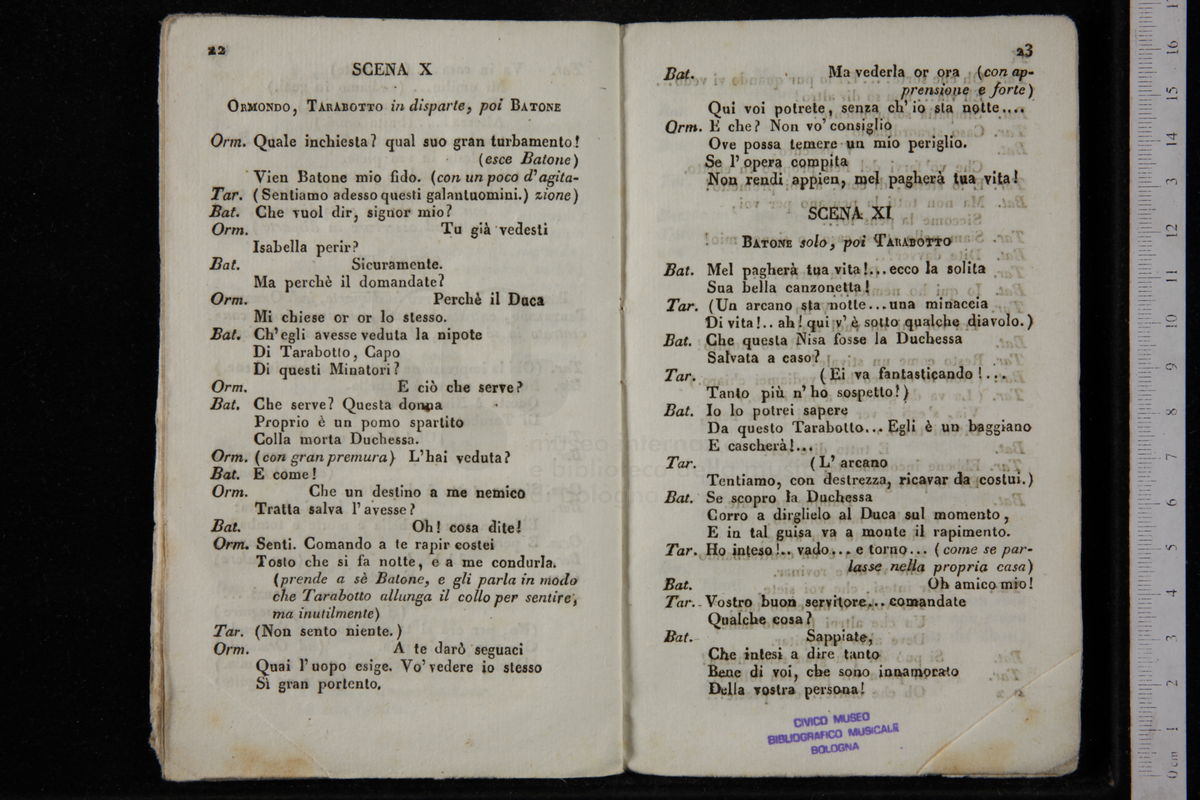 22
SCENA X
ORMONDO, TARABOTTO in disparte, poi BATONE
Orm. Quale inchiesta? qual suo gran turbamento!
(esce Batone)
Vien Batone mio fido. (con un poco d'agita-
Tar. (Sentiamo adesso questi galantuomini.) zione)
Bat. Che vuol dir, signor mio?
Orm. Tu già vedesti
Isabella perir?
Bat. Sicuramente.
Ma perchè il domandate?
Orm. Perchè il Duca
Mi chiese or or lo stesso.
Bat. Ch'egli avesse veduta la nipote
Di Tarabotto, Capo
Di questi Minatori?
Orm. E ciò che serve?
Bat. Che serve? Questa donna
Proprio è un pomo spartito
Colla morta Duchessa.
Orm. (con gran premura) L'hai veduta?
Bat. E come!
Orm. Che un destino a me nemico
Tratta salva l'avesse?
Bat. Oh! cosa dite!
Orm. Senti. Comando a te rapir costei
Tosto che si fa notte, e a me condurla.
(prende a sè Batone, e gli parla in modo
che Tarabotto allunga il collo per sentire,
ma inutilmente)
Tar. (Non sento niente.)
Orm. A te darò seguaci
Quai l'uopo esige. Vo' vedere io stesso
Sì gran portento.
23
Bat. Ma vederla or ora (con ap-
prensione e forte)
Qui voi potrete, senza ch'io sta notte....
Orm. E che? Non vo' consiglio
Ove possa temere un mio periglio.
Se l'opera compita
Non rendi appien, mel pagherà tua vita!
SCENA XI
BATONE solo, poi TARABOTTO
Bat. Mel pagherà tua vita!... ecco la solita
Sua bella canzonetta!
Tar. (Un arcano sta notte... una minaccia
Di vita!.. ah! qui v'è sotto qualche diavolo.)
Bat. Che questa Nisa fosse la Duchessa
Salvata a caso?
Tar. (Ei va fantasticando!...
Tanto più n'ho sospetto!)
Bat. Io lo potrei sapere
Da questo Tarabotto... Egli è un baggiano
E cascherà!...
Tar. (L'arcano
Tentiamo, con destrezza, ricavar da costui.)
Bat. Se scopro la Duchessa
Corro a dirglielo al Duca sul momento,
E in tal guisa va a monte il rapimento.
Tar. Ho inteso!.. vado... e torno... (come se par-
lasse nella propria casa)
Bat. Oh amico mio!
Tar. Vostro buon servitore... comandate
Qualche cosa?
Bat. Sappiate,
Che intesi a dire tanto
Bene di voi, che sono innamorato
Della vostra persona!
CIVICO MUSEO
BIBLIOGRAFICO MUSICALE
BOLOGNA